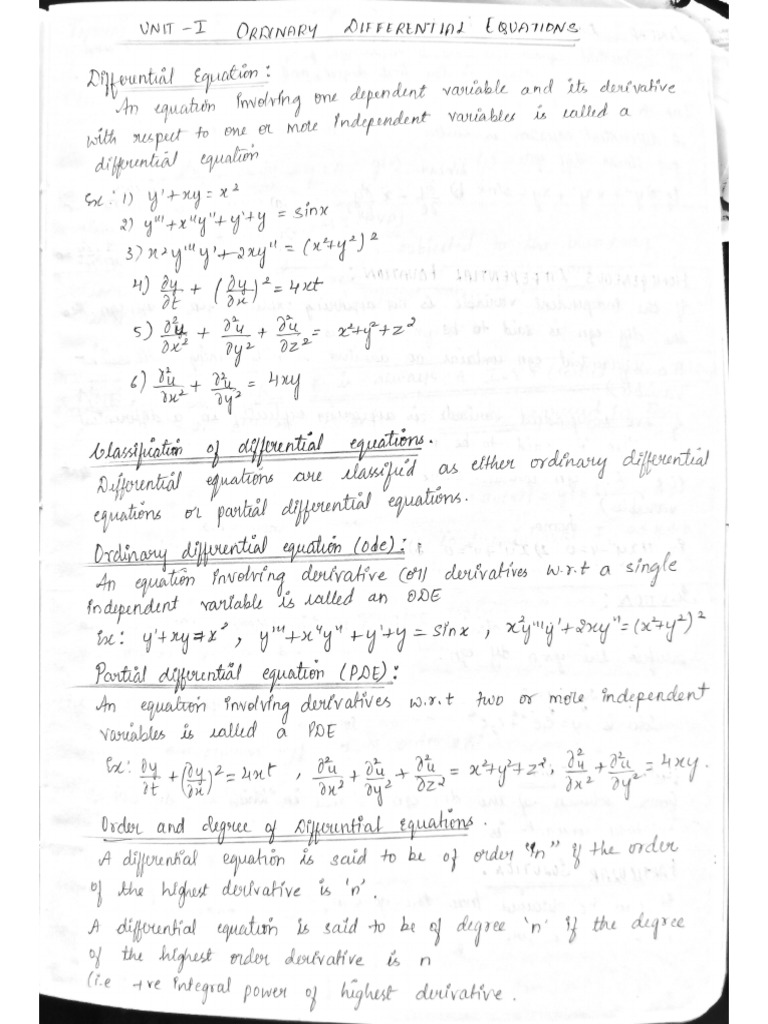 UNIT - I ORDINARY DIFFERENTIAL EQUATIONS
Differential Equation:
An equation involving one dependent variable and its derivative
with respect to one or more independent variables is called a
differential equation
Ex: 1) y' + xy = x²
2) y''' + x⁴y'' + y' + y = sinx
3) x²y'''y' + 2xy'' = (x²+y²)²
4) ∂y/∂t + (∂y/∂x)² = 4xt
5) ∂²u/∂x² + ∂²u/∂y² + ∂²u/∂z² = x²+y²+z²
6) ∂²u/∂x² + ∂²u/∂y² = 4xy
Classification of differential equations.
Differential equations are classified as either ordinary differential
equations or partial differential equations.
Ordinary differential equation (ode): :
An equation involving derivative (or) derivatives w.r.t a single
independent variable is called an ODE
Ex: y' + xy = x², y''' + x⁴y'' + y' + y = sinx, x²y'''y' + 2xy'' = (x²+y²)²
Partial differential equation (PDE):
An equation involving derivatives w.r.t two or more independent
variables is called a PDE
Ex: ∂y/∂t + (∂y/∂x)² = 4xt, ∂²u/∂x² + ∂²u/∂y² + ∂²u/∂z² = x²+y²+z², ∂²u/∂x² + ∂²u/∂y² = 4xy.
Order and degree of Differential Equations.
A differential equation is said to be of order "n" if the order
of the highest derivative is 'n'.
A differential equation is said to be of degree 'n' if the degree
of the highest order derivative is n
(i.e +ve integral power of highest derivative.